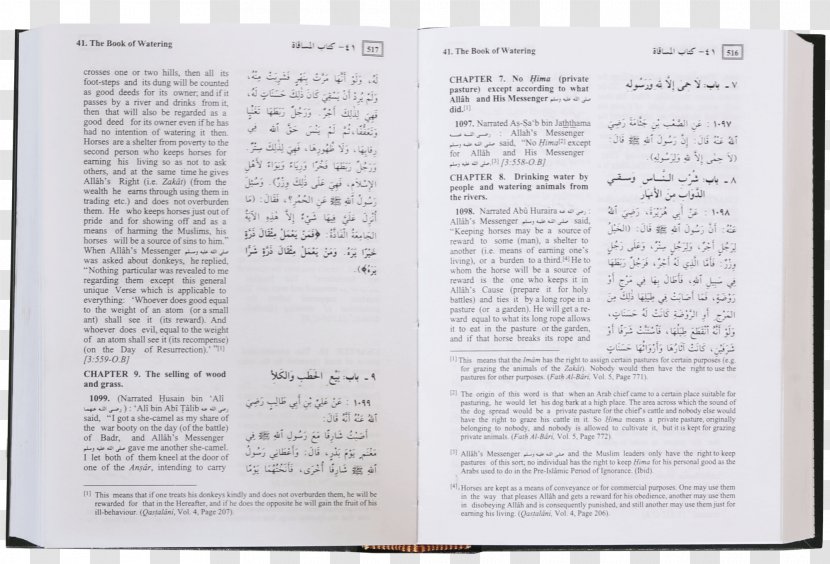 41. The Book of Watering
٤١- كتاب المساقاة
516
CHAPTER 7. No Ḥima (private
pasture) except according to what
Allâh and His Messenger صلى الله عليه وسلم
did.[1]
1097. Narrated As-Sa'b bin Jaththama
رضي الله عنه : Allah's Messenger
صلى الله عليه وسلم said, "No Ḥima[2] except
for Allâh and His Messenger
[3]." [3:558-O.B]
CHAPTER 8. Drinking water by
people and watering animals from
the rivers.
1098. Narrated Abû Huraira رضي الله عنه :
Allâh's Messenger صلى الله عليه وسلم said,
"Keeping horses may be a source of
reward to some (man), a shelter to
another (i.e. means of earning one's
living), or a burden to a third.[4] He to
whom the horse will be a source of
reward is the one who keeps it in
Allâh's Cause (prepare it for holy
battles) and ties it by a long rope in a
pasture (or a garden). He will get a re-
ward equal to what its long rope allows
it to eat in the pasture or the garden,
and if that horse breaks its rope and
٧ - باب: لَا حِمَى إِلَّا لله وَرَسُولِه
١٠٩٧ : عَنِ الصَّعْبِ بْنِ جَثَّامَةَ رَضِيَ
اللهُ عَنْهُ قَالَ: إِنَّ رَسُولَ اللهِ ﷺ قَالَ:
(لَا حِمَى إِلَّا لِلَّهِ وَلِرَسُولِهِ).
٨ - باب: شُرْبِ النَّاسِ وَسَقْيِ
الدَّوَابِّ مِنَ الأَنْهَارِ
١٠٩٨ : عَنْ أَبِي هُرَيْرَةَ، رَضِيَ اللهُ
عَنْهُ: أَنَّ رَسُولَ اللهِ ﷺ قَالَ: (الخَيْلُ
لِرَجُلٍ أَجْرٌ، وَلِرَجُلٍ سِتْرٌ، وَعَلَى رَجُلٍ
وِزْرٌ. فَأَمَّا الَّذِي لَهُ أَجْرٌ، فَرَجُلٌ رَبَطَهَا
فِي سَبِيلِ اللهِ، فَأَطَالَ بِهَا فِي مَرْجٍ أَوْ
رَوْضَةٍ، فَمَا أَصَابَتْ فِي طِيَلِهَا ذَلِكَ مِنَ
المَرْجِ أَوِ الرَّوْضَةِ كَانَتْ لَهُ حَسَنَاتٍ،
وَلَوْ أَنَّهُ انْقَطَعَ طِيَلُهَا، فَاسْتَنَّتْ شَرَفًا أَوْ
شَرَفَيْنِ، كَانَتْ آثَارُهَا وَأَرْوَاثُهَا حَسَنَاتٍ
[1] This means that the Imâm has the right to assign certain pastures for certain purposes (e.g.
for grazing the animals of the Zakât). Nobody would then have the right to use the
pastures for other purposes. (Fath Al-Bâri, Vol. 5, Page 771).
[2] The origin of this word is that when an Arab chief came to a certain place suitable for
pasturing, he would let his dog bark at a high place. The area across which the sound of
the dog spread would be a private pasture for the chief's cattle and nobody else would
have the right to graze his cattle in it. So Ḥima means a private pasture, originally
belonging to nobody, and nobody is allowed to cultivate it, but it is kept for grazing
private animals. (Fath Al-Bâri, Vol. 5, Page 772).
[3] Allâh's Messenger صلى الله عليه وسلم and the Muslim leaders only have the right to keep
pastures of this sort; no individual has the right to keep Ḥima for his personal good as the
Arabs used to do in the Pre-Islâmic Period of Ignorance. (Ibid).
[4] Horses are kept as a means of conveyance or for commercial purposes. One may use them
in the way that pleases Allâh and gets a reward for his obedience, another may use them
in disobeying Allâh and is consequently punished, and still another may use them just for
earning his living. (Qastalâni, Vol. 4, Page 206).
41. The Book of Watering
٤١- كتاب المساقاة
517
crosses one or two hills, then all its
foot-steps and its dung will be counted
as good deeds for its owner; and if it
passes by a river and drinks from it,
then that will also be regarded as a
good deed for its owner even if he has
had no intention of watering it then.
Horses are a shelter from poverty to the
second person who keeps horses for
earning his living so as not to ask
others, and at the same time he gives
Allâh's Right (i.e. Zakât) (from the
wealth he earns through using them in
trading etc.) and does not overburden
them. He who keeps horses just out of
pride and for showing off and as a
means of harming the Muslims, his
horses will be a source of sins to him."
When Allâh's Messenger صلى الله عليه وسلم
was asked about donkeys, he replied,
"Nothing particular was revealed to me
regarding them except this general
unique Verse which is applicable to
everything: 'Whoever does good equal
to the weight of an atom (or a small
ant) shall see it (its reward). And
whoever does evil, equal to the weight
of an atom shall see it (its recompense)
(on the Day of Resurrection).' "[1]
[3:559-O.B]
CHAPTER 9. The selling of wood
and grass.
1099. (Narrated Husain bin 'Alî
رضي الله عنهما ) : 'Alî bin Abî Tâlib رضي الله عنه
said, "I got a she-camel as my share of
the war booty on the day (of the battle)
of Badr, and Allâh's Messenger
صلى الله عليه وسلم gave me another she-camel.
I let both of them kneel at the door of
one of the Anṣâr, intending to carry
لَهُ، وَلَوْ أَنَّهَا مَرَّتْ بِنَهَرٍ فَشَرِبَتْ مِنْهُ،
وَلَمْ يُرِدْ أَنْ يَسْقِيَ كَانَ ذَلِكَ حَسَنَاتٍ لَهُ،
فَهِيَ لِذَلِكَ أَجْرٌ. وَرَجُلٌ رَبَطَهَا تَغَنِّيًا
وَتَعَفُّفًا، ثُمَّ لَمْ يَنْسَ حَقَّ اللهِ فِي
رِقَابِهَا، وَلَا ظُهُورِهَا، فَهِيَ لِذَلِكَ سِتْرٌ.
وَرَجُلٌ رَبَطَهَا فَخْرًا وَرِيَاءً وَنِوَاءً لِأَهْلِ
الإِسْلَامِ، فَهِيَ عَلَى ذَلِكَ وِزْرٌ). وَسُئِلَ
رَسُولُ اللهِ ﷺ عَنِ الحُمُرِ؟، فَقَالَ: (مَا
أُنْزِلَ عَلَيَّ فِيهَا شَيْءٌ إِلَّا هَذِهِ الآيَةُ
الجَامِعَةُ الفَاذَّةُ: ﴿فَمَن يَعْمَلْ مِثْقَالَ ذَرَّةٍ
خَيْرًا يَرَهُ. وَمَنْ يَعْمَلْ مِثْقَالَ ذَرَّةٍ شَرًّا
يَرَهُ﴾).
٩ - باب: بَيْعُ الحَطَبِ وَالكَلَأِ
١٠٩٩ : عَنْ عَلِيِّ بْنِ أَبِي طَالِبٍ رَضِيَ
اللهُ عَنْهُ أَنَّهُ قَالَ:
أَصَبْتُ شَارِفًا مَعَ رَسُولِ اللهِ ﷺ فِي
مَغْنَمٍ يَوْمَ بَدْرٍ، قَالَ: وَأَعْطَانِي رَسُولُ
اللهِ ﷺ شَارِفًا أُخْرَى، فَأَنَخْتُهُمَا يَوْمًا
[1] This means that if one treats his donkeys kindly and does not overburden them, he will be
rewarded for that in the Hereafter, and if he does the opposite he will gain the fruit of
his ill-behaviour. (Qastalâni, Vol. 4, Page 207).